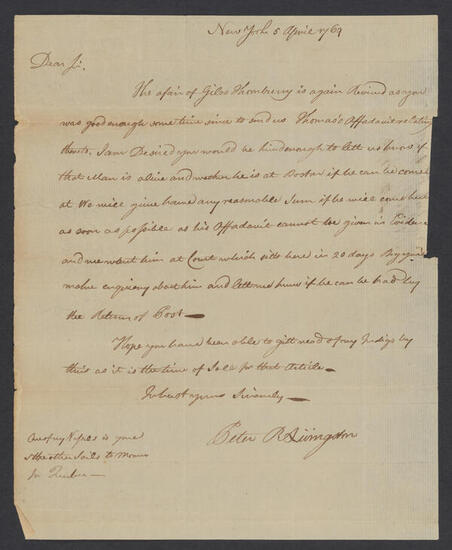 New York 5 Aprie 1769
Dear Sir.
The afair of Giles Thornberry is again Revived as you
was good enough some time since to send us Thomas's Affadavit relating
thereto, I am Desired you would be kind enough to lett us know if
that Man is alive and wether he is at Boston if he can be come
at We will give him any reasonable Sum if he will come here
as soon as possible as his Affadavit cannot be given in Evidence
and we want him at Court which sitts here in 20 days Pray
make enquirey about him and lett me know if he can be had by
the Return of Post
Hope you have been able to gitt read of my Indigo by
this as it is the time of Sale for that Article
In hast yours Sincearly
Peter R Livingston
One of my is
& the other Sails to Morrow
for